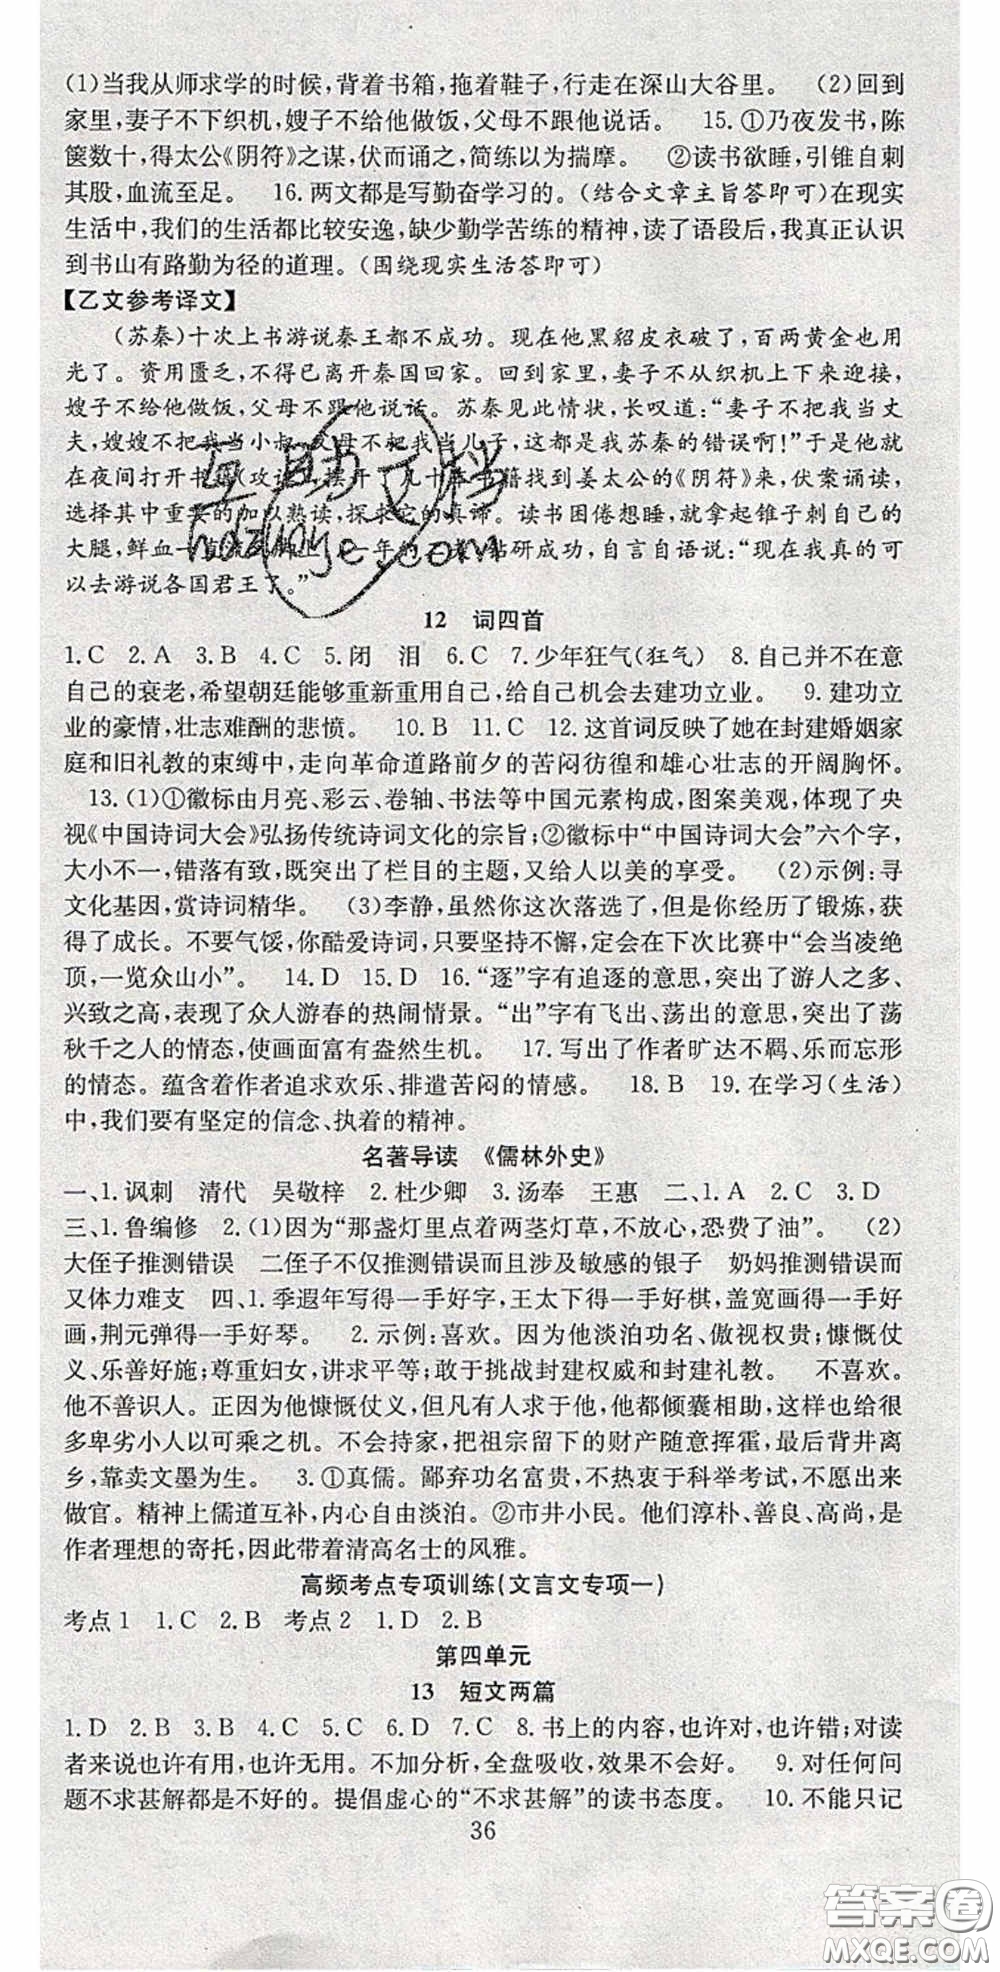 (1)当我从师求学的时候,背着书箱,拖着鞋子,行走在深山大谷里。 (2)回到
家里,妻子不下织机,嫂子不给他做饭,父母不跟他说话。 15.①乃夜发书,陈
箧数十,得太公《阴符》之谋,伏而诵之,简练以为揣摩。 ②读书欲睡,引锥自刺
其股,血流至足。 16.两文都是写勤奋学习的。(结合文章主旨答即可)在现实
生活中,我们的生活都比较安逸,缺少勤学苦练的精神,读了语段后,我真正认识
到书山有路勤为径的道理。(围绕现实生活答即可)
【乙文参考译文】
(苏秦)十次上书游说秦王都不成功。现在他黑貂皮衣破了,百两黄金也用
光了。资用匮乏,不得已离开秦国回家。回到家里,妻子不从织机上下来迎接,
嫂子不给他做饭,父母不跟他说话。苏秦见此情状,长叹道:“妻子不把我当丈
夫,嫂嫂不把我当小叔,父母不把我当儿子,这都是我苏秦的错误啊!”于是他就
在夜间打开书箱(攻读),摆开了几十本书籍找到姜太公的《阴符》来,伏案诵读,
选择其中重要的加以熟读,探求它的真谛。读书困倦想睡,就拿起锥子刺自己的
大腿,鲜血一直流 年的 钻研成功,自言自语说:“现在我真的可
以去游说各国君王了。”
12 词四首
1.C 2.A 3.B 4.C 5.闭 泪 6.C 7.少年狂气(狂气) 8.自己并不在意
自己的衰老,希望朝廷能够重新重用自己,给自己机会去建功立业。 9.建功立
业的豪情,壮志难酬的悲愤。 10.B 11.C 12.这首词反映了她在封建婚姻家
庭和旧礼教的束缚中,走向革命道路前夕的苦闷彷徨和雄心壮志的开阔胸怀。
13.(1)①徽标由月亮、彩云、卷轴、书法等中国元素构成,图案美观,体现了央
视《中国诗词大会》弘扬传统诗词文化的宗旨;②徽标中“中国诗词大会”六个字,
大小不一,错落有致,既突出了栏目的主题,又给人以美的享受。 (2)示例:寻
文化基因,赏诗词精华。 (3)李静,虽然你这次落选了,但你经历了锻炼,获
得了成长。不要气馁,你酷爱诗词,只要坚持不懈,定会在下次比赛中“会当凌绝
顶,一览众山小”。 14.D 15.D 16.“逐”字有追逐的意思,突出了游人之多、
兴致之高,表现了众人游春的热闹情景。“出”字有飞出、荡出的意思,突出了荡
秋千之人的情态,使画面富有盎然生机。 17.写出了作者旷达不羁、乐而忘形
的情态。蕴含着作者追求欢乐、排遣苦闷的情感。 18.B 19.在学习(生活)
中,我们要有坚定的信念、执着的精神。
名著导读 《儒林外史》
一、1.讽刺 清代 吴敬梓 2.杜少卿 3.汤奉 王惠 二、1.A 2.C 3.D
三、1.鲁编修 2.(1)因为“那盏灯里点着两茎灯草,不放心,恐费了油”。 (2)
大侄子推测错误 二侄子不仅推测错误而且涉及敏感的银子 奶妈推测错误而
又体力难支 四、1.季遐年写得一手好字,王太下得一手好棋,盖宽画得一手好
画,荆元弹得一手好琴。 2.示例:喜欢。因为他淡泊功名、傲视权贵;慷慨仗
义、乐善好施;尊重妇女,讲求平等;敢于挑战封建权威和封建礼教。 不喜欢。
他不善识人。正因为他慷慨仗义,但凡有人求于他,他都倾囊相助,这也给了很
多卑劣小人以可乘之机。不会持家,把祖宗留下的财产随意挥霍,最后背井离
乡,靠卖文墨为生。 3.①真儒。鄙弃功名富贵,不热衷于科举考试,不愿出来
做官。精神上儒道互补,内心自由淡泊。②市井小民。他们淳朴、善良、高尚,是
作者理想的寄托,因此带着清高名士的风雅。
高频考点专项训练(文言文专项一)
考点1 1.C 2.B 考点2 1.D 2.B
第四单元
13 短文两篇
1.D 2.B 3.B 4.B 5.C 6.D 7.C 8.书上的内容,也许对,也许错;对读
者来说也许有用,也许无用。不加分析,全盘吸收,效果不会好。 9.对任何问
题不求甚解都是不好的。提倡虚心的“不求甚解”的读书态度。 10.不能只记
36
答案圈
MXQE.COM